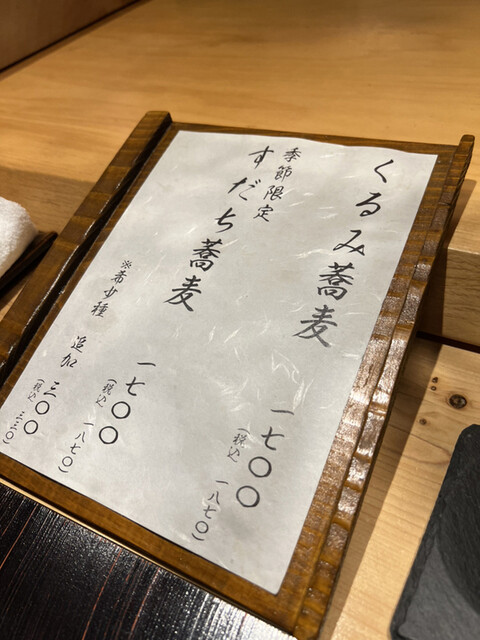 くるみ蕎麦
一七〇〇
(税込 一八七〇)
季節限定
すだち蕎麦
一七〇〇
(税込 一八七〇)
※希少種 追加 三〇〇
(税込 三三〇)